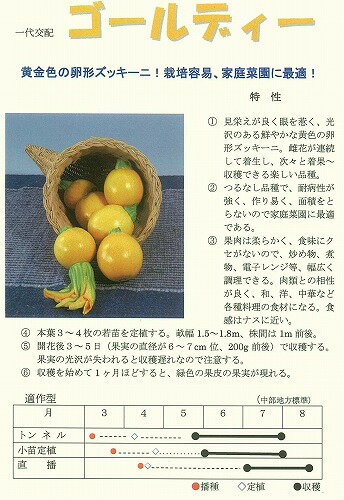 一代交配
ゴールディー
黄金色の卵形ズッキーニ！栽培容易、家庭菜園に最適！
特性
① 見栄えが良く眼を惹く、光
沢のある鮮やかな黄色の卵
形ズッキーニ。雌花が連続
して着生し、次々と着果～
収穫できる楽しい品種。
② つるなし品種で、耐病性が
強く、作り易く、面積をと
らないので家庭菜園に最適
である。
③ 果肉は柔らかく、食味にク
セがないので、炒め物、煮
物、電子レンジ等、幅広く
調理できる。肉類との相性
が良く、和、洋、中華など
各種料理の食材になる。食
感はナスに近い。
④ 本葉３～４枚の若苗を定植する。畝幅1.5～1.8m、株間は1m前後。
⑤ 開花後３～５日（果実の直径が６～７cm位、200g前後）で収穫する。
果実の光沢が失われると収穫遅れなので注意する。
⑥ 収穫を始めて１ヶ月ほどすると、緑色の果皮の果実が現れる。
適作型
（中部地方標準）
月 3 4 5 6 7 8
トンネル
小苗定植
直播
●播種 ◇定植 ●収穫